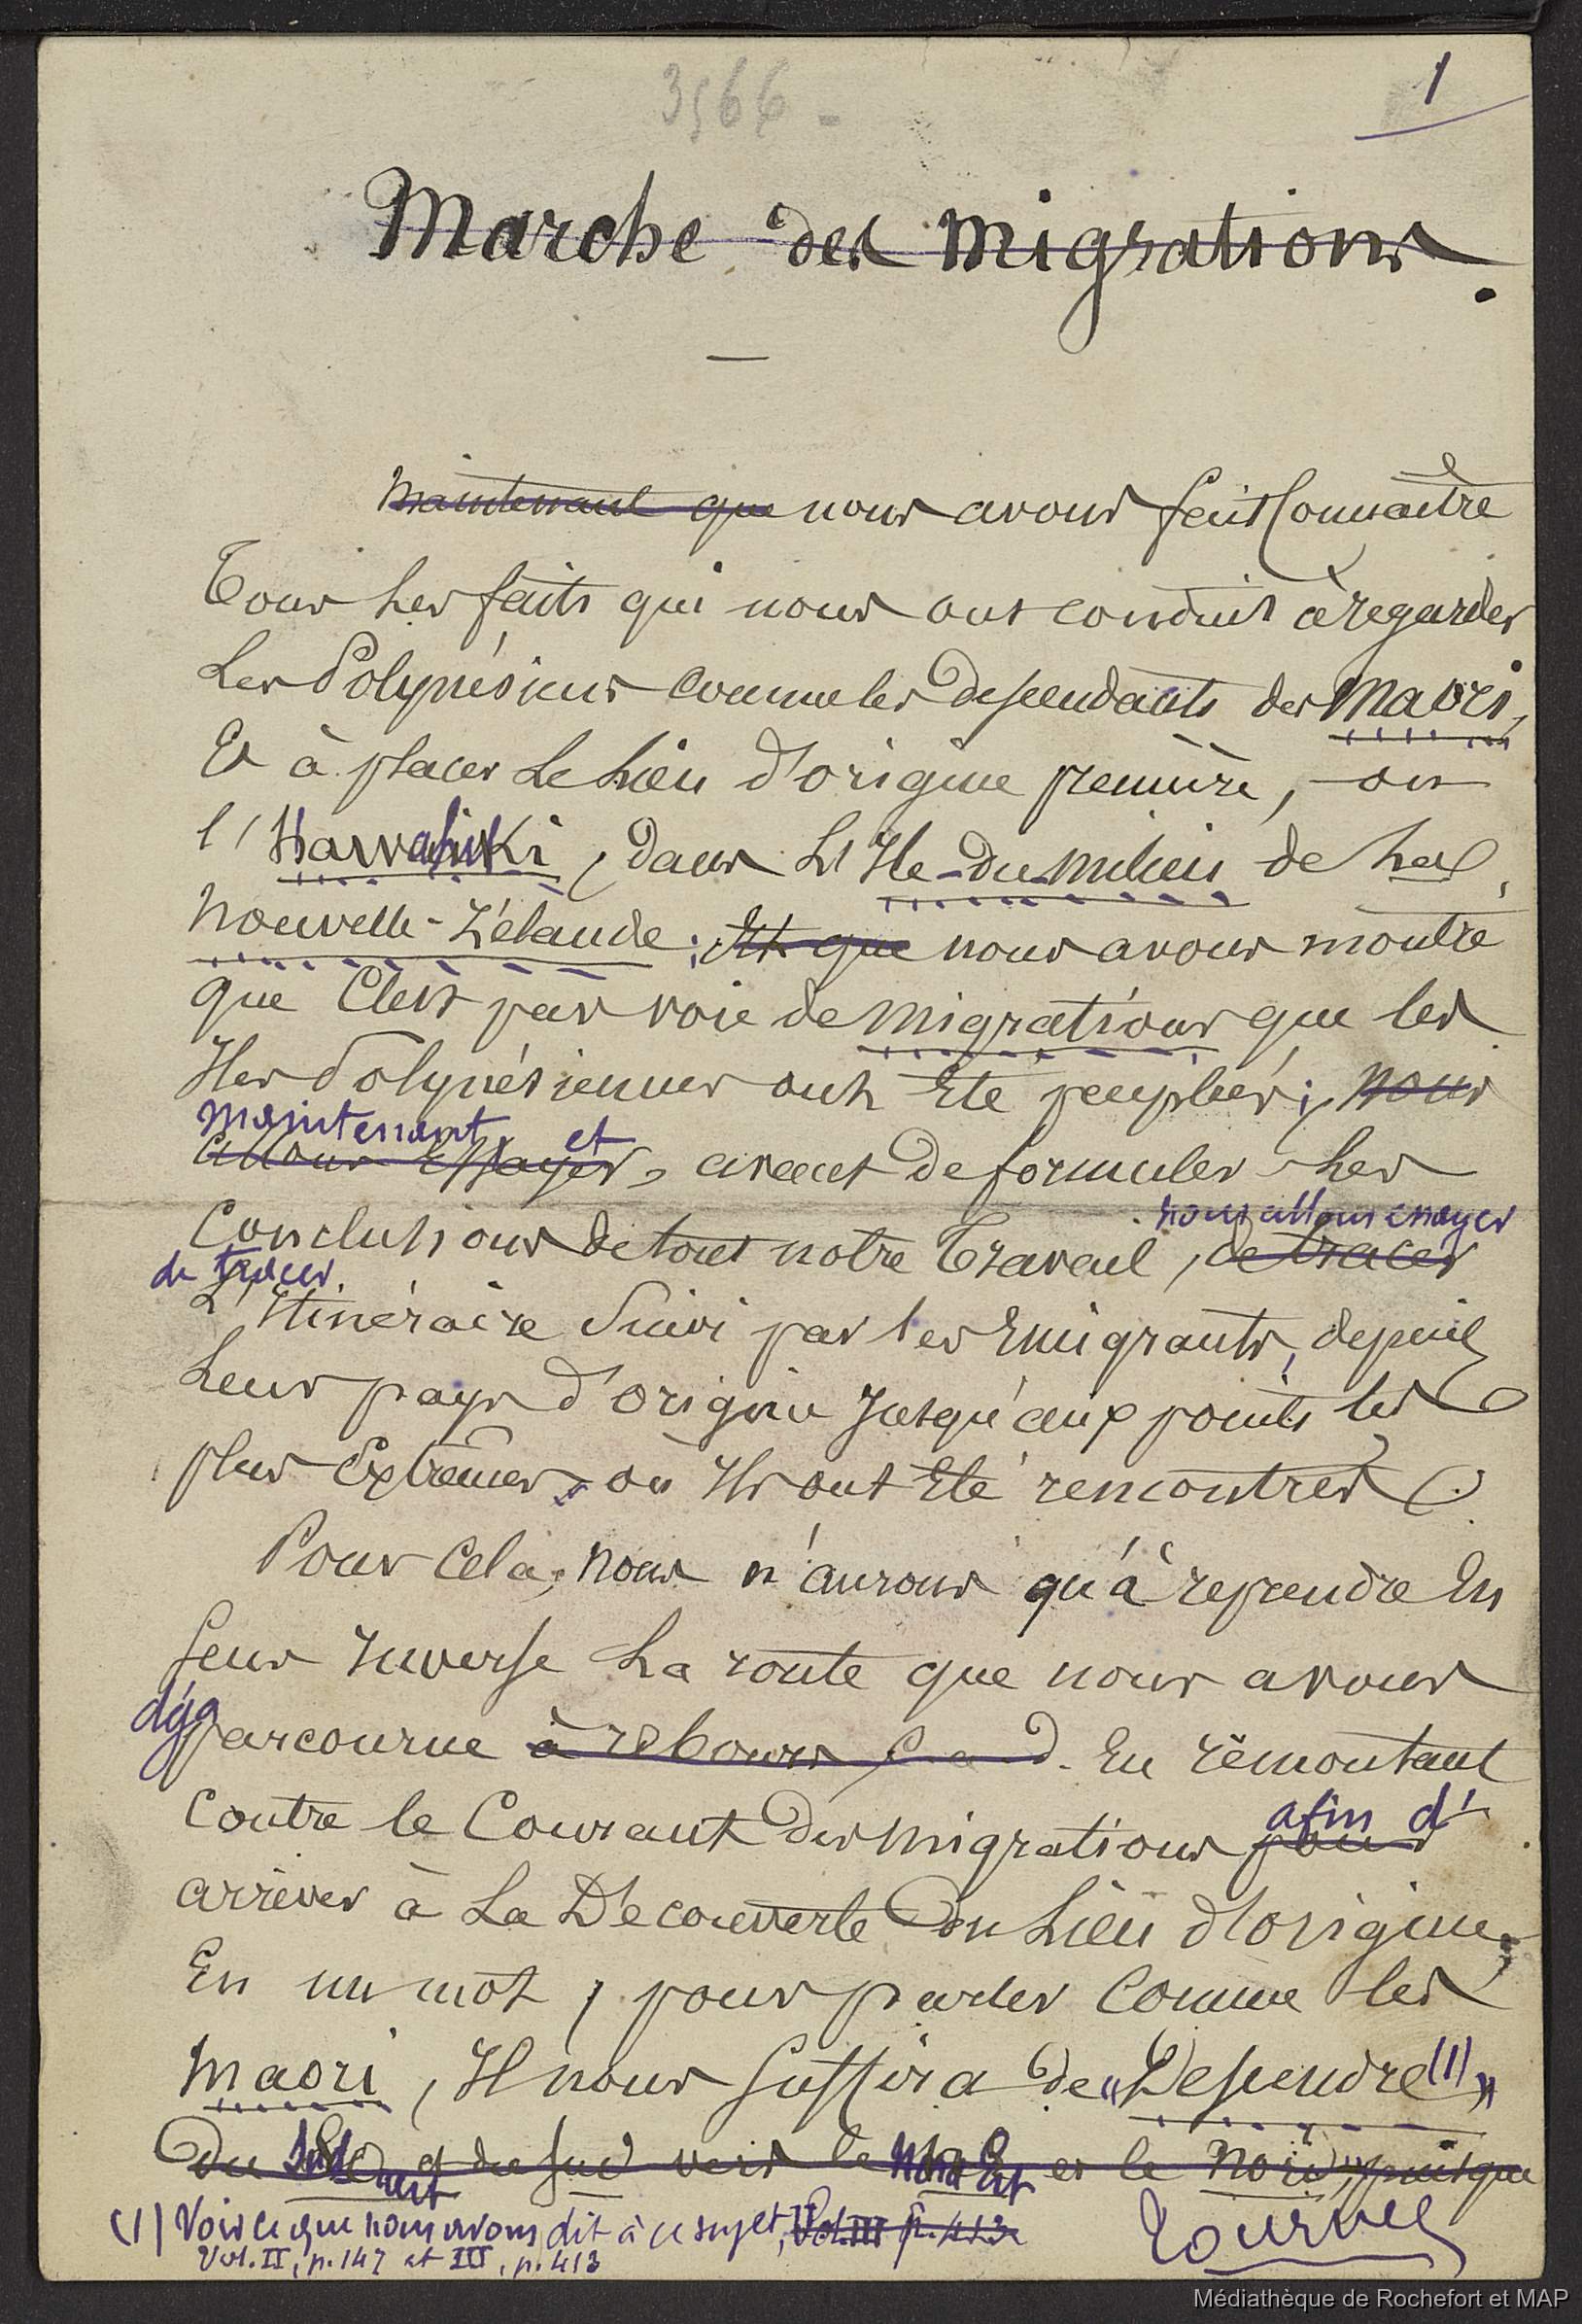 3566 -
1
Marche des Migrations.
Maintenant que nous avons fait Connaître
Tous les faits qui nous ont conduit à regarder
Les Polynésiens comme les descendants des Maori,
Et à placer Le Lieu d'origine première, - ou
l'Hawahiki, dans L'Ile-du milieu de La
Nouvelle-Zélande; Et que nous avons montré
que C'est par voie de migrations que les
Iles Polynésiennes ont Eté peuplées; nous
maintenant et
allons Essayer, avant de formuler les
nous allons essayer
Conclusions de tout notre Travail, de tracer
de tracer
L'Itinéraire Suivi par les Emigrants, depuis
Leur pays d'origine Jusqu'aux points les
plus Extrêmes où Ils ont Eté rencontrés.
Pour Cela, Nous n'aurons qu'à reprendre En
Sens Inverse La route que nous avons
déja
parcourue à rebours c. a. d. En remontant
afin d'
Contre le Courant des migrations pour
arriver à La Découverte du Lieu d'origine;
En un mot, pour parler Comme les
Maori, Il nous Suffira de "Descendre (1)"
Du Sud Ouest et du sud vers le Nord Est et le Nord, puisque
(1) Voir ce que nous avons dit à ce sujet, Vol. III p. 413
Vol. II, p. 147 et III, p. 413
Tournez
Médiathèque de Rochefort et MAP